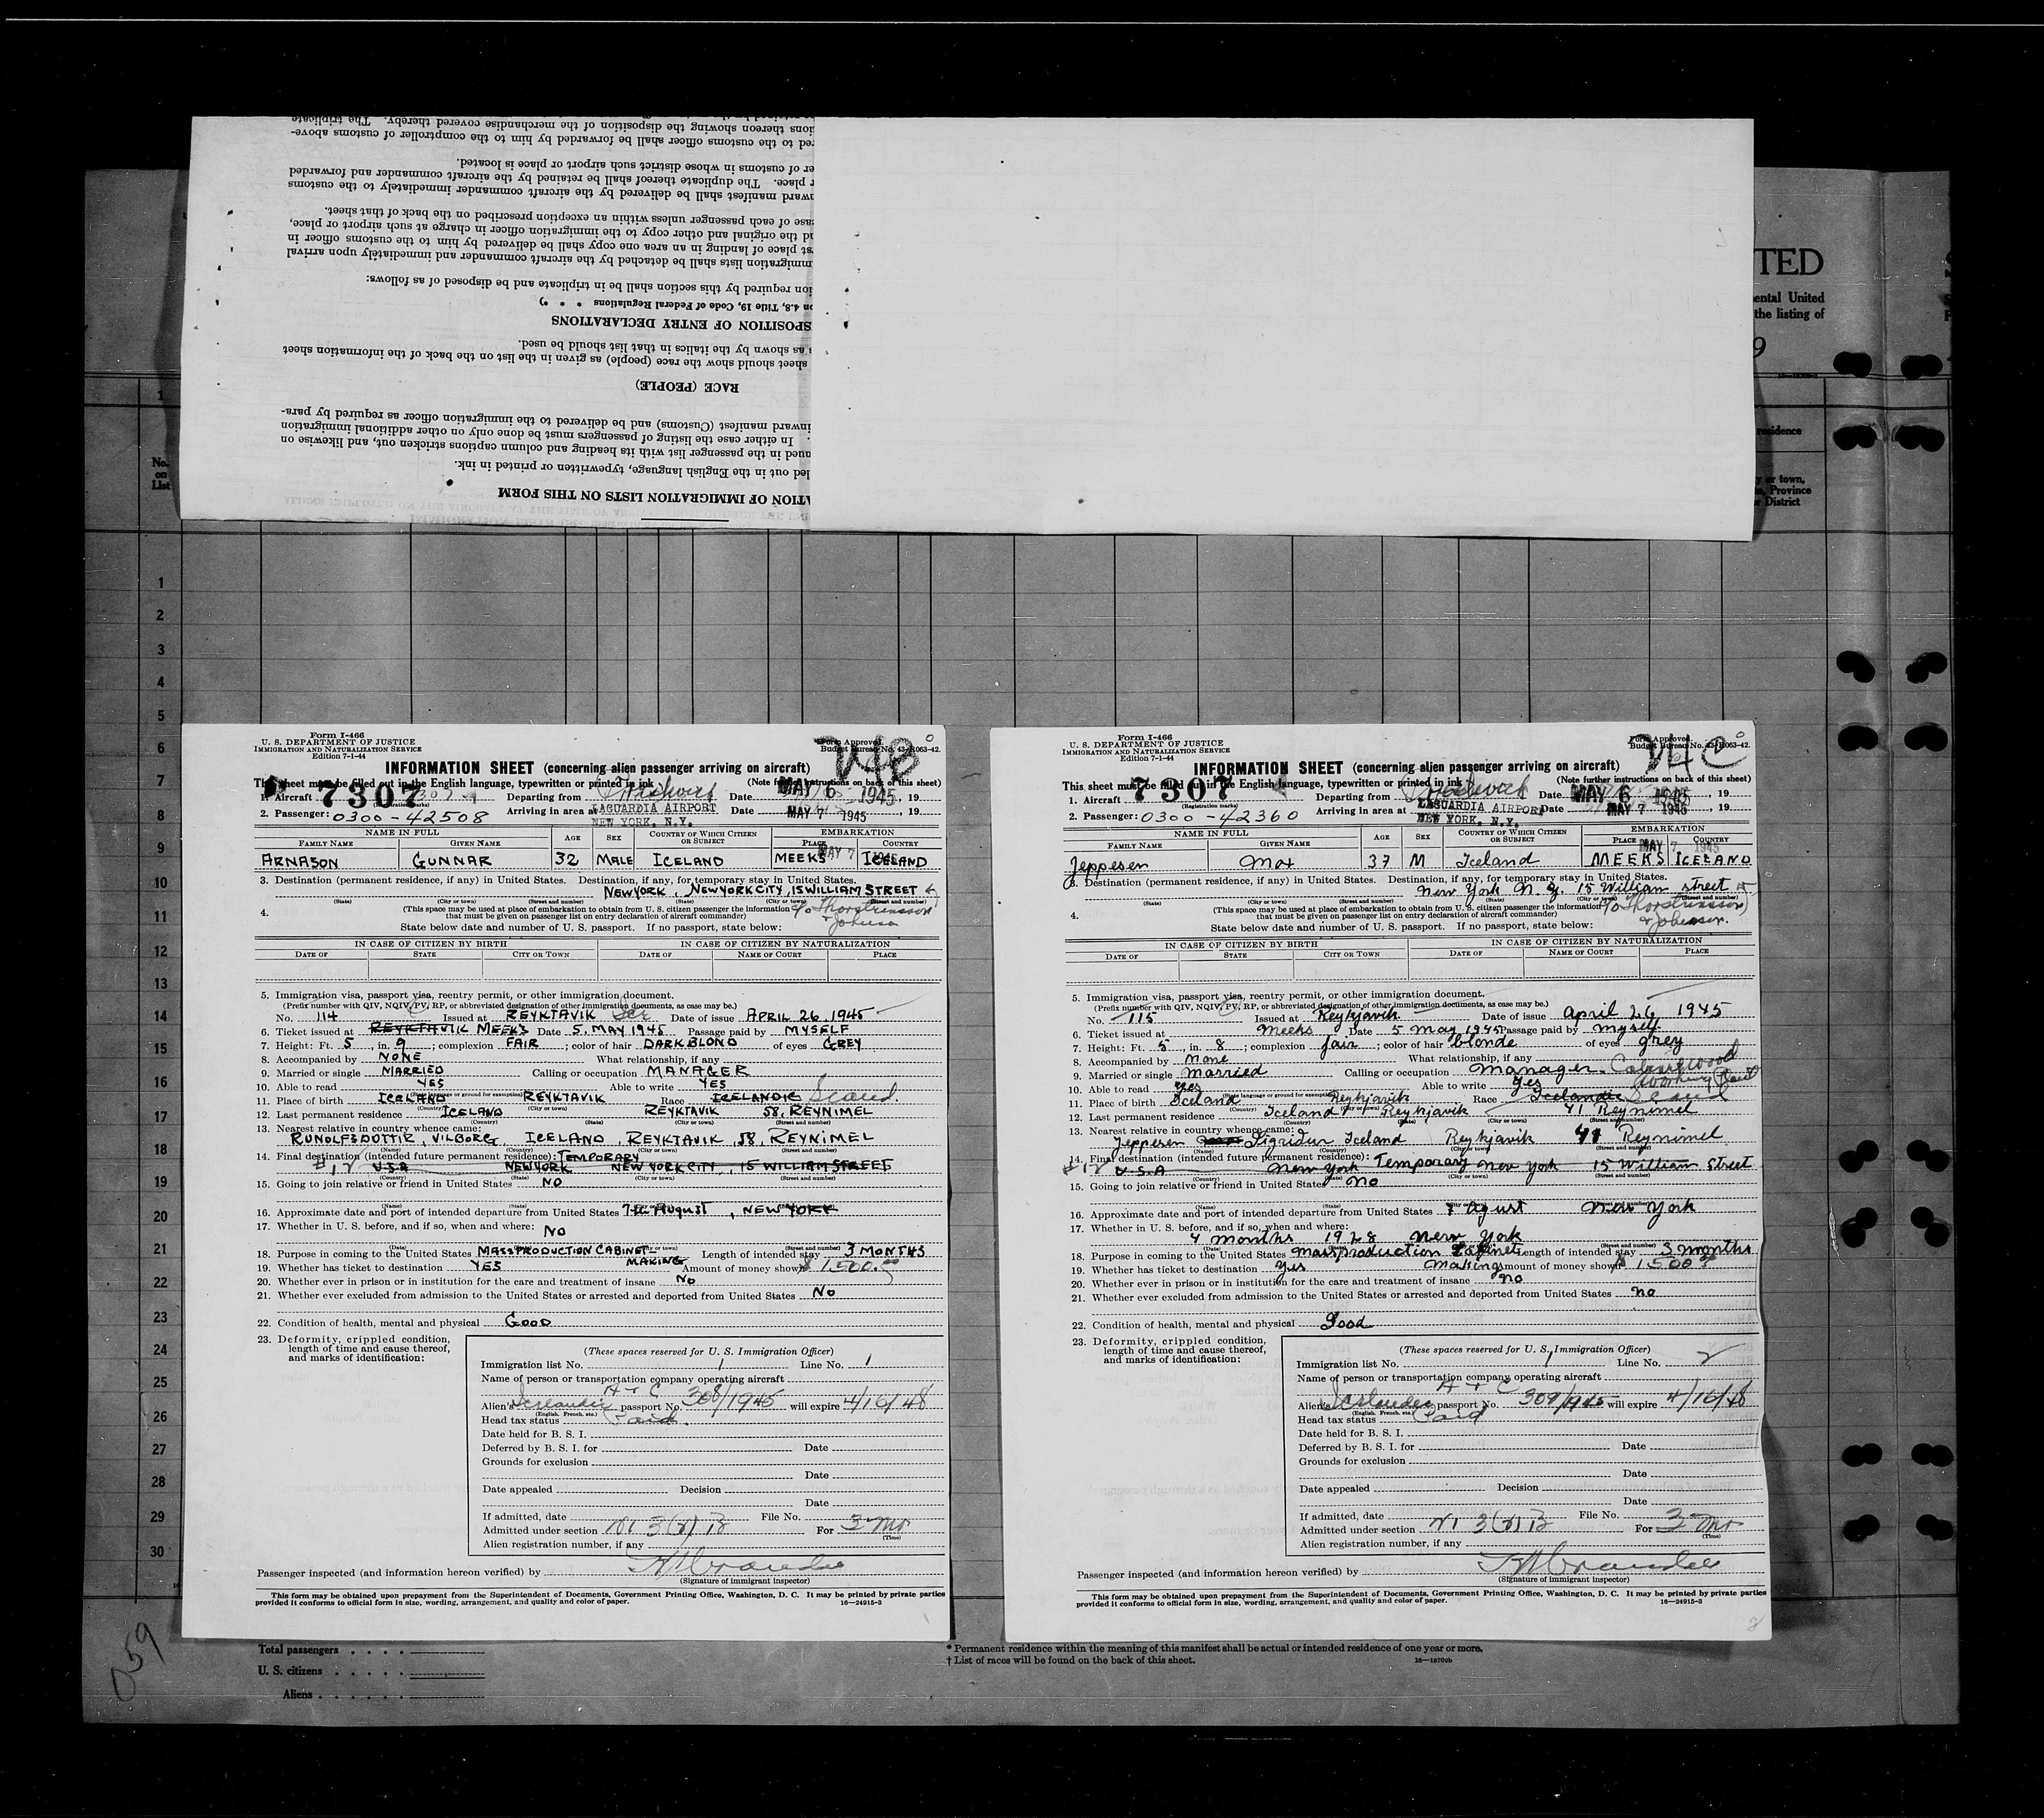 tions thereon showing the disposition of the merchandise covered thereby. The triplicate
red to the customs officer shall be forwarded by him to the comptroller of customs above-
er of customs in whose district such airport or place is located.
r place. The duplicate thereof shall be retained by the aircraft commander and forwarded
ward manifest shall be delivered by the aircraft commander immediately to the customs
ase of each passenger unless within an exception prescribed on the back of that sheet.
d the original and other copy to the immigration officer in charge at such airport or place,
st place of landing in an area one copy shall be delivered by him to the customs officer in
mmigration lists shall be detached by the aircraft commander and immediately upon arrival
ion required by this section shall be in triplicate and be disposed of as follows:
on 4.8, Title 19, Code of Federal Regulations * * *)
SPOSITION OF ENTRY DECLARATIONS
s as shown by the italics in that list should be used.
sheet should show the race (people) as given in the list on the back of the information sheet
RACE (PEOPLE)
inward manifest (Customs) and be delivered to the immigration officer as required by para-
. In either case the listing of passengers must be done only on other additional immigration
nued in the passenger list with its heading and column captions stricken out, and likewise on
led out in the English language, typewritten or printed in ink.
ATION OF IMMIGRATION LISTS ON THIS FORM
TED
ental United
the listing of
9
residence
y or town,
Province
or District
No. on List
1
1
2
3
4
5
6
7
8
9
10
11
12
13
14
15
16
17
18
19
20
21
22
23
24
25
26
27
28
29
30
Form I-466
U. S. DEPARTMENT OF JUSTICE
IMMIGRATION AND NATURALIZATION SERVICE
Edition 7-1-44
Form Approved.
Budget Bureau No. 43-R063-42.
INFORMATION SHEET (concerning alien passenger arriving on aircraft)
This sheet must be filled out in the English language, typewritten or printed in ink (Note further instructions on back of this sheet)
1. Aircraft 7307 (Registration marks) Departing from Date MAY 6 1945, 19
2. Passenger: 0300-42508 Arriving in area at LAGUARDIA AIRPORT NEW YORK, N.Y. Date MAY 7 1945
NAME IN FULL AGE SEX COUNTRY OF WHICH CITIZEN OR SUBJECT EMBARKATION
FAMILY NAME GIVEN NAME PLACE COUNTRY
MAY 7 1945
ARNASON GUNNAR 32 MALE ICELAND MEEKS ICELAND
3. Destination (permanent residence, if any) in United States. Destination, if any, for temporary stay in United States.
NEW YORK, NEW YORK CITY, 15 WILLIAM STREET
(State) (City or town) (Street and number) (State) (City or town) (Street and number)
4. (This space may be used at place of embarkation to obtain from U. S. citizen passenger the information
that must be given on passenger list on entry declaration of aircraft commander)
State below date and number of U. S. passport. If no passport, state below:
IN CASE OF CITIZEN BY BIRTH IN CASE OF CITIZEN BY NATURALIZATION
DATE OF STATE CITY OR TOWN DATE OF NAME OF COURT PLACE
5. Immigration visa, passport visa, reentry permit, or other immigration document.
(Prefix number with QIV, NQIV, PV, RP, or abbreviated designation of other immigration documents, as case may be.)
No. 114 Issued at REYKTAVIK Date of issue APRIL 26 1945
6. Ticket issued at REYKTAVIK MEEKS Date 5. MAY 1945 Passage paid by MYSELF
7. Height: Ft. 5, in. 9; complexion FAIR; color of hair DARK BLOND of eyes GREY
8. Accompanied by NONE What relationship, if any
9. Married or single MARRIED Calling or occupation MANAGER
10. Able to read YES Able to write YES
11. Place of birth ICELAND REYKTAVIK Race ICELANDIC Scand.
12. Last permanent residence ICELAND REYKTAVIK 58, REYNIMEL
13. Nearest relative in country whence came:
RUNOLFSDOTTIR, VILBORG, ICELAND, REYKTAVIK, 58, REYNIMEL
14. Final destination (intended future permanent residence): TEMPORARY
#1,2 U.S.A NEW YORK NEW YORK CITY, 15 WILLIAM STREET
15. Going to join relative or friend in United States NO
16. Approximate date and port of intended departure from United States 7th August, NEW YORK
17. Whether in U. S. before, and if so, when and where: NO
18. Purpose in coming to the United States MASSPRODUCTION CABINET-MAKING Length of intended stay 3 MONTHS
19. Whether has ticket to destination YES Amount of money shown $1500.00
20. Whether ever in prison or in institution for the care and treatment of insane No
21. Whether ever excluded from admission to the United States or arrested and deported from United States No
22. Condition of health, mental and physical GOOD
23. Deformity, crippled condition,
length of time and cause thereof,
and marks of identification:
(These spaces reserved for U. S. Immigration Officer)
Immigration list No. 1 Line No. 1
Name of person or transportation company operating aircraft
Alien's Icelandic passport No. 308/1945 will expire 4/16/48
Head tax status Paid.
Date held for B. S. I.
Deferred by B. S. I. for Date
Grounds for exclusion
Date
Date appealed Decision
Date
If admitted, date File No.
Admitted under section 3(2) B For 3 mo (Time)
Alien registration number, if any
Passenger inspected (and information hereon verified) by
(Signature of immigrant inspector)
This form may be obtained upon prepayment from the Superintendent of Documents, Government Printing Office, Washington, D. C. It may be printed by private parties
provided it conforms to official form in size, wording, arrangement, and quality and color of paper. 16—24915-3
Form I-466
U. S. DEPARTMENT OF JUSTICE
IMMIGRATION AND NATURALIZATION SERVICE
Edition 7-1-44
Form Approved.
Budget Bureau No. 43-R063-42.
INFORMATION SHEET (concerning alien passenger arriving on aircraft)
This sheet must be filled out in the English language, typewritten or printed in ink (Note further instructions on back of this sheet)
1. Aircraft 7307 (Registration marks) Departing from Date MAY 6 1945, 19
2. Passenger: 0300-42360 Arriving in area at LAGUARDIA AIRPORT NEW YORK, N.Y. Date MAY 7 1945, 19
NAME IN FULL AGE SEX COUNTRY OF WHICH CITIZEN OR SUBJECT EMBARKATION
FAMILY NAME GIVEN NAME PLACE COUNTRY
MAY 7 1945
Jeppesen Max 37 M Iceland MEEKS ICELAND
3. Destination (permanent residence, if any) in United States. Destination, if any, for temporary stay in United States.
New York N.Y. 15 William street
(State) (City or town) (Street and number) (State) (City or town) (Street and number)
4. (This space may be used at place of embarkation to obtain from U. S. citizen passenger the information
that must be given on passenger list on entry declaration of aircraft commander)
State below date and number of U. S. passport. If no passport, state below:
IN CASE OF CITIZEN BY BIRTH IN CASE OF CITIZEN BY NATURALIZATION
DATE OF STATE CITY OR TOWN DATE OF NAME OF COURT PLACE
5. Immigration visa, passport visa, reentry permit, or other immigration document.
(Prefix number with QIV, NQIV, PV, RP, or abbreviated designation of other immigration documents, as case may be.)
No. 115 Issued at Reykjavik Date of issue April 26 1945
6. Ticket issued at Meeks Date 5 May 1945 Passage paid by myself
7. Height: Ft. 5, in. 8; complexion fair; color of hair blonde of eyes grey
8. Accompanied by none What relationship, if any
9. Married or single Married Calling or occupation Manager
10. Able to read Yes Able to write Yes
11. Place of birth Iceland Reykjavik Race Icelandic Scand
12. Last permanent residence Iceland Reykjavik 41 Reynimel
13. Nearest relative in country whence came:
Jeppesen Sigridur Iceland Reykjavik 41 Reynimel
14. Final destination (intended future permanent residence):
#12 U.S.A New York Temporary New York 15 William Street
15. Going to join relative or friend in United States no
16. Approximate date and port of intended departure from United States 7 Agust New York
17. Whether in U. S. before, and if so, when and where:
4 months 1928 New York
18. Purpose in coming to the United States Massproduction Cabinet Making Length of intended stay 3 months
19. Whether has ticket to destination Yes Amount of money shown $1500
20. Whether ever in prison or in institution for the care and treatment of insane no
21. Whether ever excluded from admission to the United States or arrested and deported from United States no
22. Condition of health, mental and physical Good
23. Deformity, crippled condition,
length of time and cause thereof,
and marks of identification:
(These spaces reserved for U. S. Immigration Officer)
Immigration list No. 1 Line No. 2
Name of person or transportation company operating aircraft
Alien's Icelandic passport No. 309/1945 will expire 4/16/48
Head tax status Paid
Date held for B. S. I.
Deferred by B. S. I. for Date
Grounds for exclusion
Date
Date appealed Decision
Date
If admitted, date File No.
Admitted under section 3(2) B For 3 mo (Time)
Alien registration number, if any
Passenger inspected (and information hereon verified) by
(Signature of immigrant inspector)
This form may be obtained upon prepayment from the Superintendent of Documents, Government Printing Office, Washington, D. C. It may be printed by private parties
provided it conforms to official form in size, wording, arrangement, and quality and color of paper. 16—24915-3
2
059
Total passengers
U. S. citizens
Aliens
* Permanent residence within the meaning of this manifest shall be actual or intended residence of one year or more.
† List of races will be found on the back of this sheet.